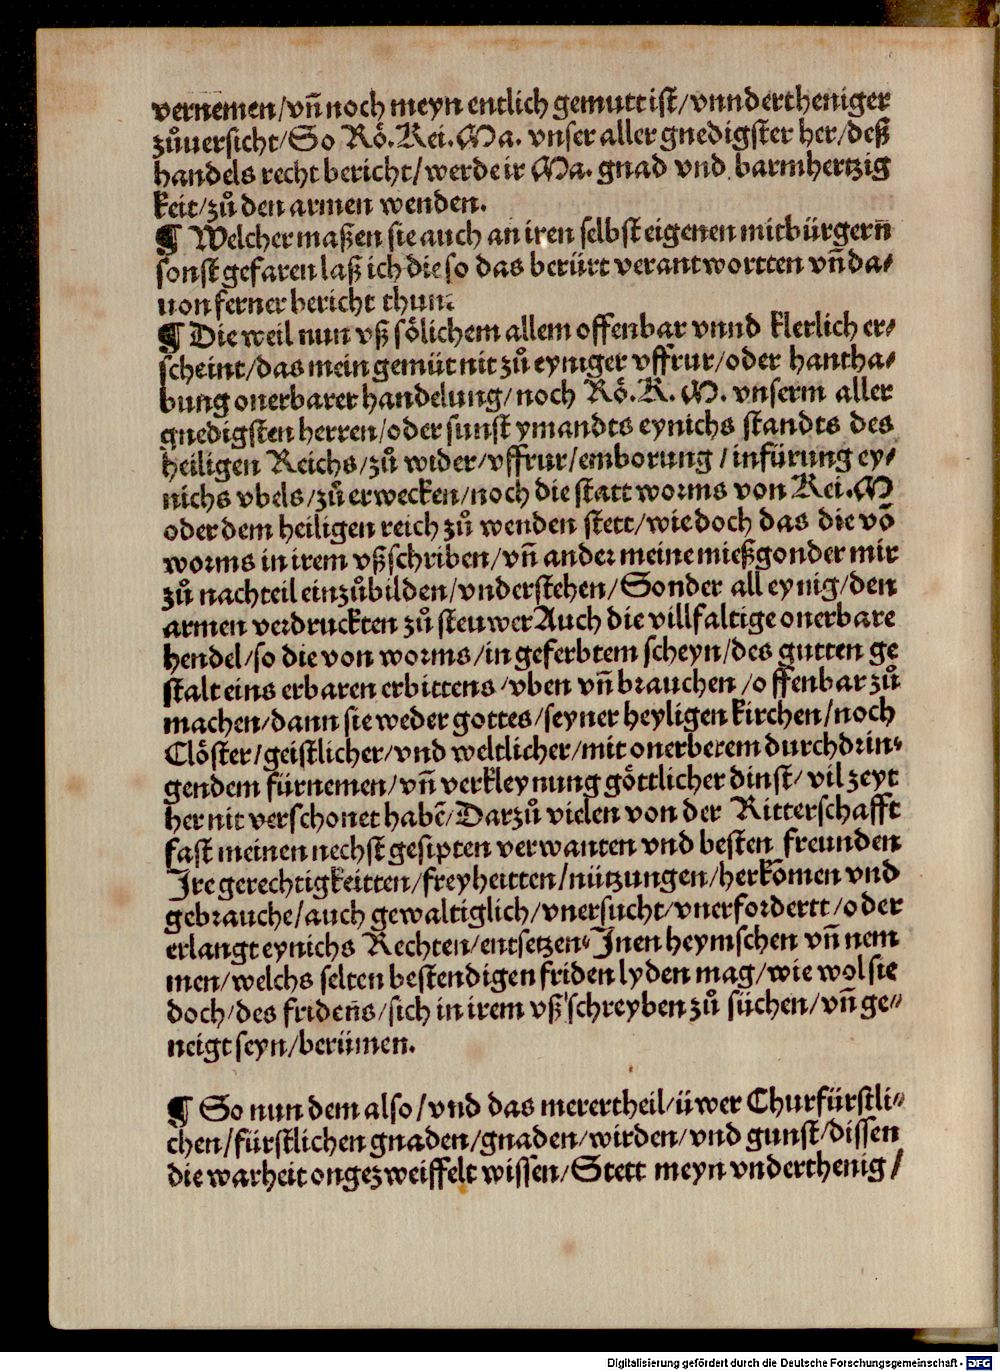 vernemen/vñ noch meyn entlich gemutt ist/vnndertheniger
zůuersicht/So Rö.Kei.Ma. vnser aller gnedigster her/deß
handels recht bericht/werde ir Ma. gnad vnd barmhertzig
keit/zů den armen wenden.
¶ Welcher maßen sie auch an iren selbst eigenen mitbürgern
sonst gefaren laß ich die so das berürt verantwortten vñ da⸗
uon ferner bericht thun.
¶ Die weil nun vß sölichem allem offenbar vnnd klerlich er⸗
scheint/das mein gemüt nit zů eyniger vffrur/oder hantha⸗
bung onerbarer handelung/noch Rö.K. M. vnserm aller
gnedigsten herren/oder sunst ymandts eynichs standts des
heiligen Reichs/zů wider/vffrur/emborung/infürung ey⸗
nichs vbels/zů erwecken/noch die statt worms von Kei.M
oder dem heiligen reich zů wenden stett/wie doch das die võ
worms in irem vßschriben/vñ ander meine mießgonder mir
zů nachteil einzůbilden/vnderstehen/Sonder all eynig/den
armen verdruckten zů steuwer Auch die villfaltige onerbare
hendel/so die von worms/in geferbtem scheyn/des gutten ge
stalt eins erbaren erbittens/vben vñ brauchen/offenbar zů
machen/dann sie weder gottes/seyner heyligen kirchen/noch
Clöster/geistlicher/vnd weltlicher/mit onerberem durchdrin⸗
gendem fürnemen/vñ verkleynung göttlicher dinst/vil zeyt
her nit verschonet habẽ/Darzů vielen von der Ritterschafft
fast meinen nechst gesipten verwanten vnd besten freunden
Ire gerechtigkeitten/freyheitten/nützungen/herkõmen vnd
gebrauche/auch gewaltiglich/vnersucht/vnerfordertt/oder
erlangt eynichs Rechten/entsetzen⸗Inen heymschen vñ nem
men/welchs selten bestendigen friden lyden mag/wie wol sie
doch/des fridens/sich in irem vß schreyben zů süchen/vñ ge⸗
neigt seyn/berümen.
¶ So nun dem also/vnd das merertheil/üwer Churfürstli⸗
chen/fürstlichen gnaden/gnaden/wirden/vnd gunst/dissen
die warheit ongezweiffelt wissen/Stett meyn vnderthenig/
Digitalisierung gefördert durch die Deutsche Forschungsgemeinschaft - DFG